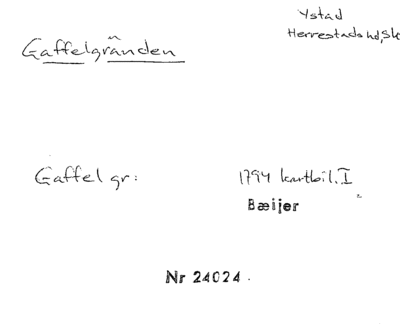 Ystad
Herrestads hd, Sk
Gaffelgränden
Gaffel gr: 1794 kartbil. I
Bæijer
Nr 24024.